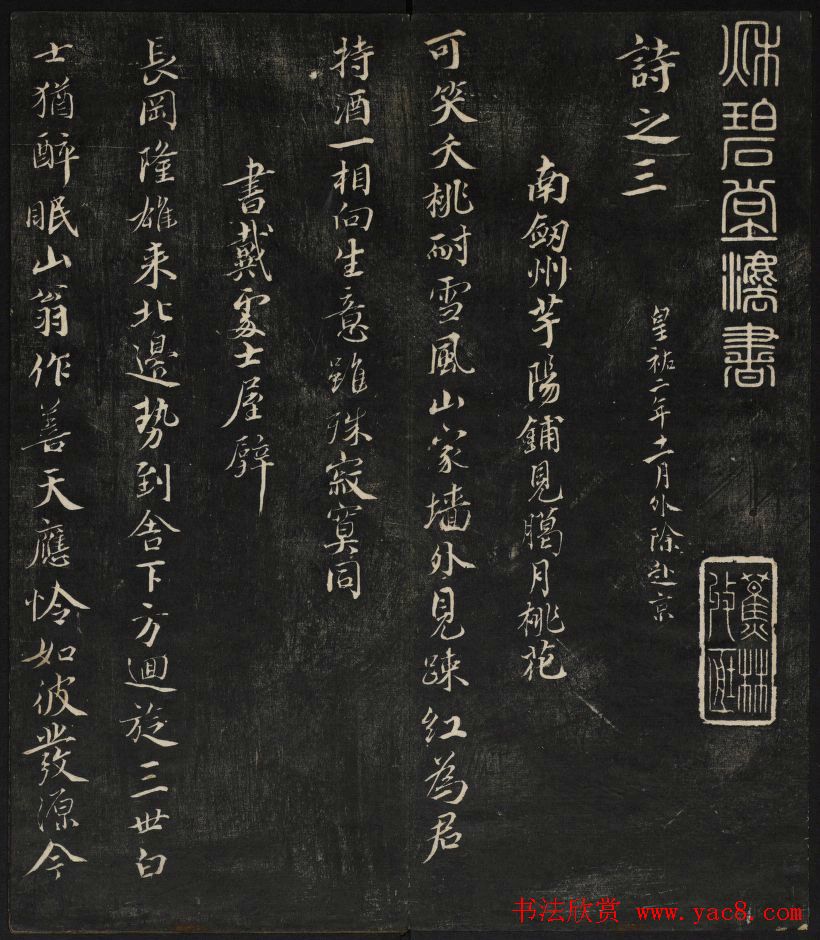 秋碧堂法書
蕉林
詩之三
皇祐二年十一月外除赴京
南劔州芋陽鋪見臈月桃花
可笑夭桃耐雪風山家墻外見踈紅為君
持酒一相向生意雖殊寂寞同
書戴處士屋壁
長岡隆雄来北邊勢到舎下方迴旋三世白
士猶醉眠山翁作善天應怜如彼發源今
书法欣赏 www.yac8.com